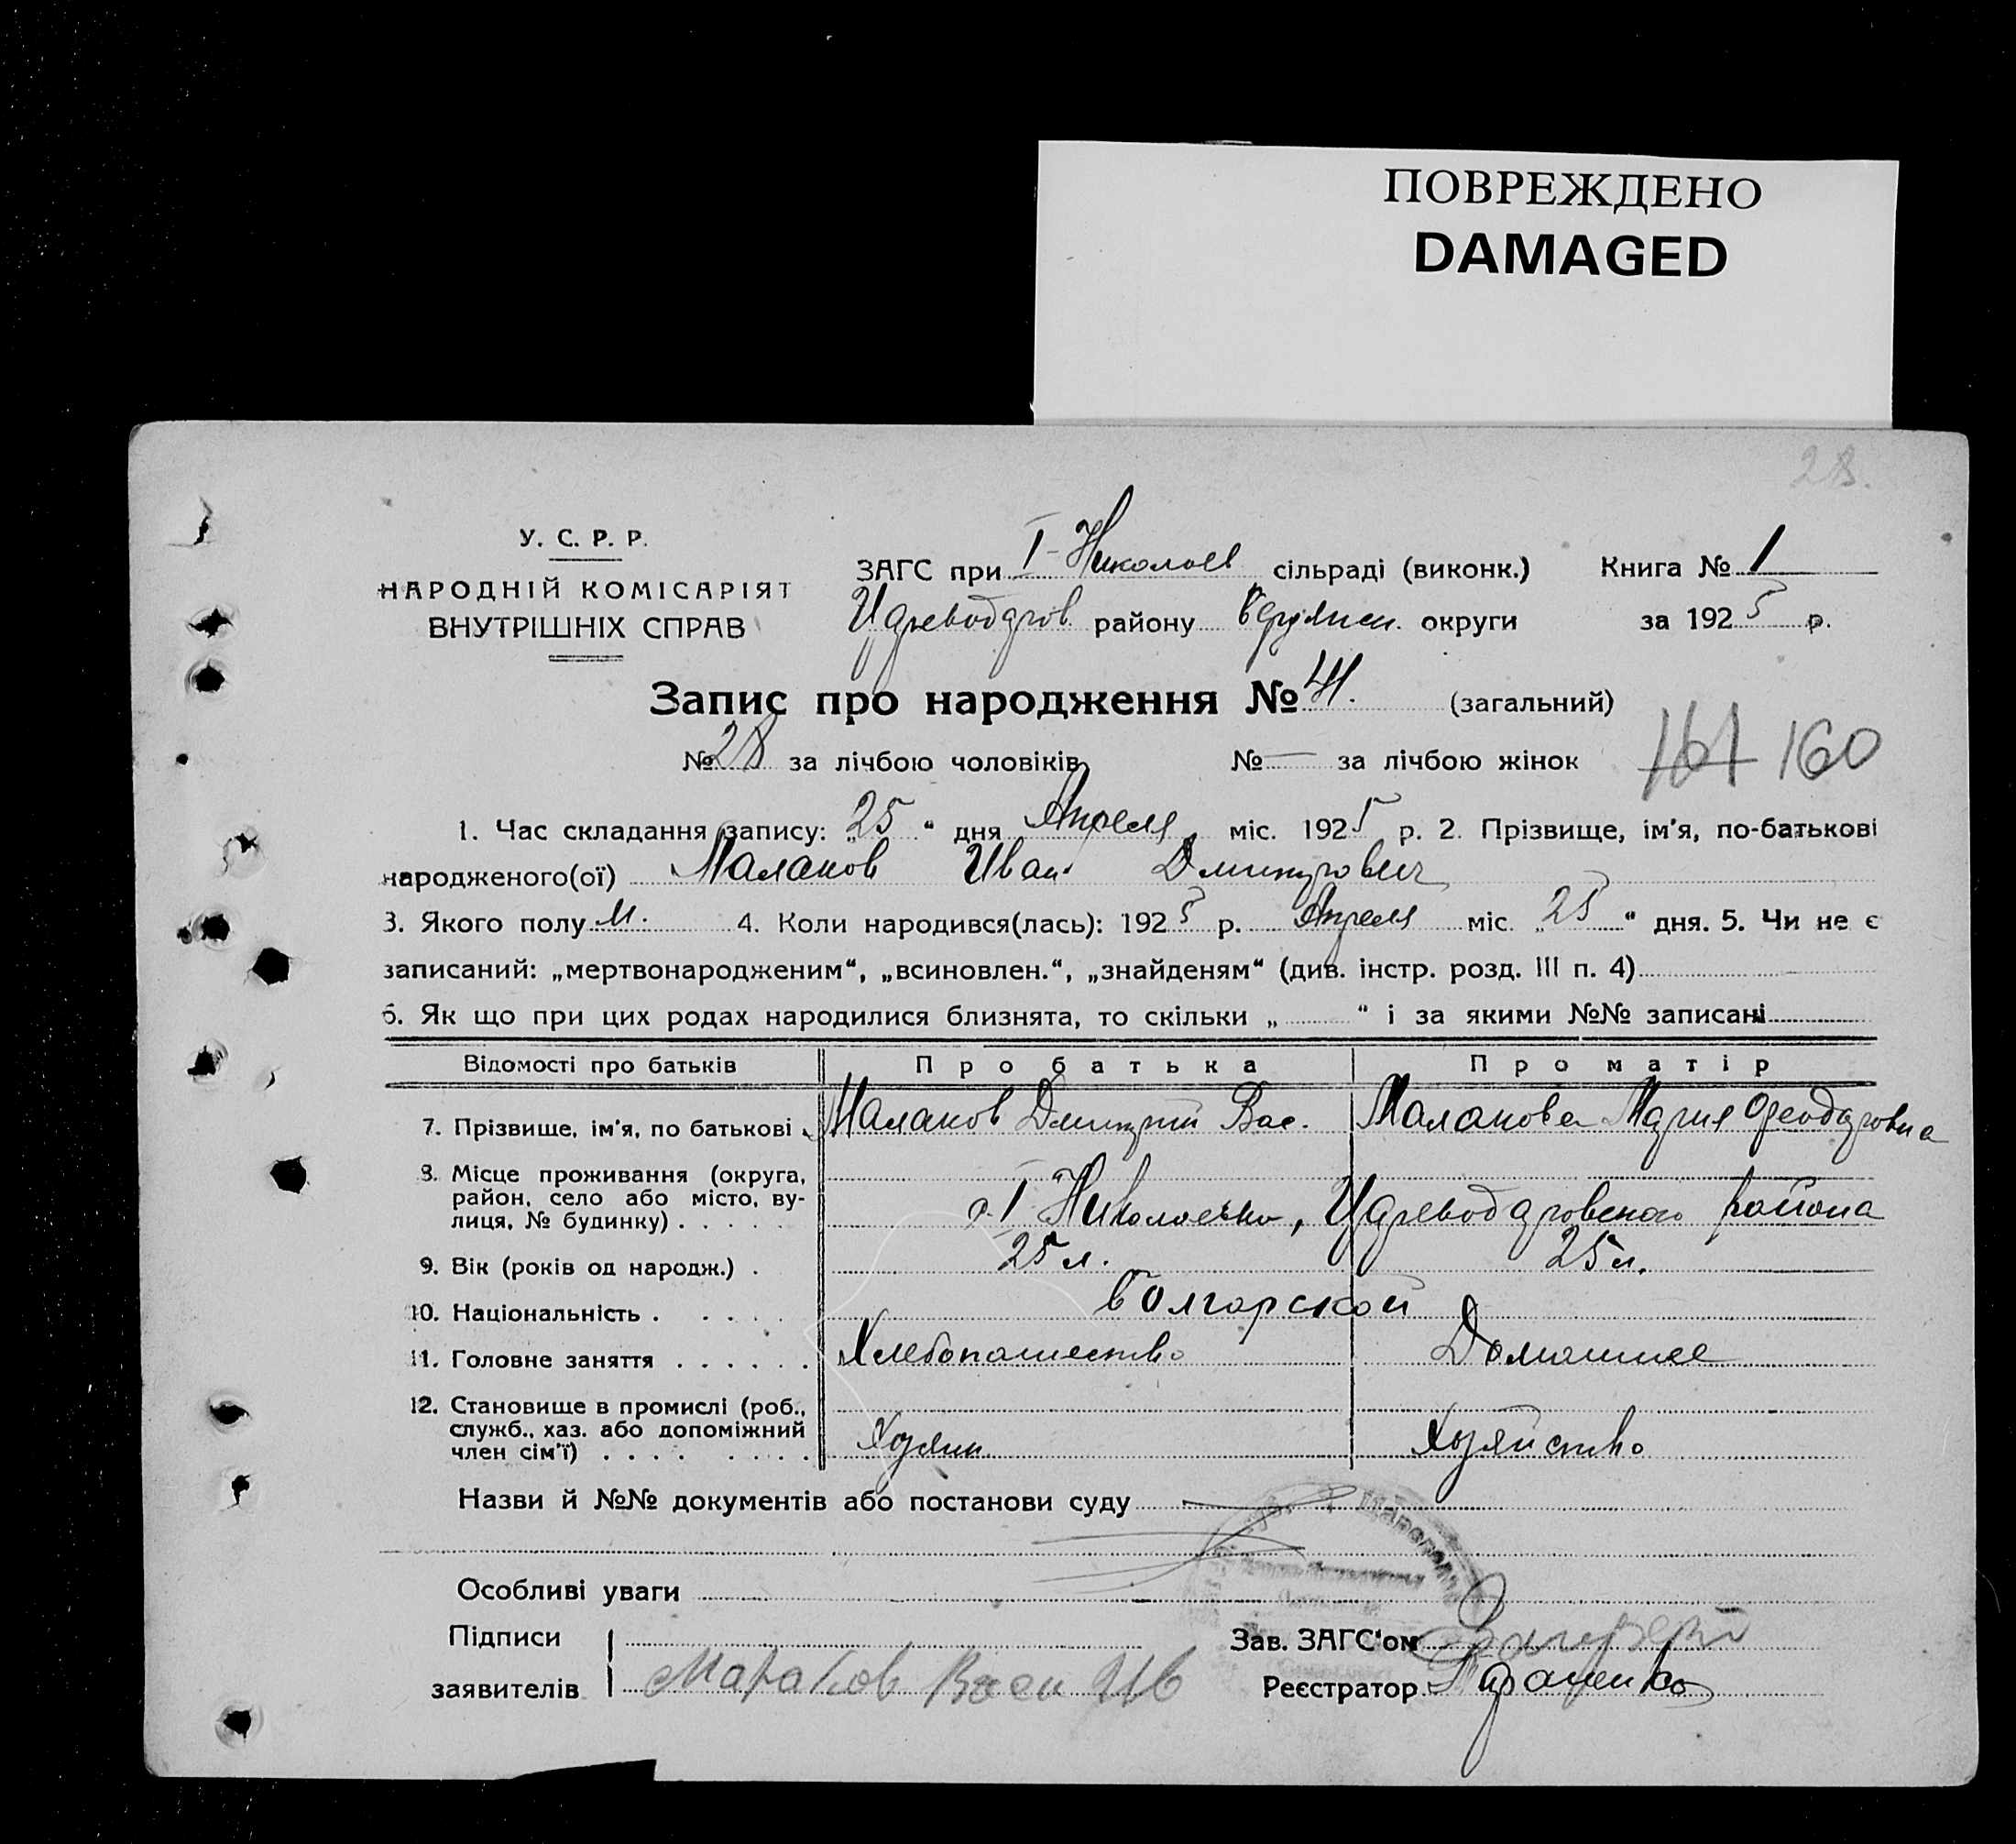 ПОВРЕЖДЕНО
DAMAGED
28.
У. С. Р. Р.
НАРОДНІЙ КОМІСАРІЯТ
ВНУТРІШНІХ СПРАВ
ЗАГС при I-Николаев сільраді (виконк.) Книга № 1
району Бердянск. округи за 1925 р.
Запис про народження № 41. (загальний)
№ 28 за лічбою чоловіків № — за лічбою жінок 161 160
1. Час складання запису: „25" дня Апреля міс. 1925 р. 2. Прізвище, ім'я, по-батькові
народженого(ої) Малаков Иван Дмитрович
3. Якого полу м. 4. Коли народився(лась): 1925 р. Апреля міс. „25" дня. 5. Чи не є
записаний: „мертвонародженим", „всиновлен.", „знайденям" (див. інстр. розд. III п. 4)
6. Як що при цих родах народилися близнята, то скільки „ " і за якими №№ записані
Відомості про батьків Про батька Про матір
7. Прізвище, ім'я, по батькові Малаков Дмитрий Вас. Малакова Мария Феодоровна
8. Місце проживання (округа,
район, село або місто, ву-
лиця, № будинку) с. I Николаевка, района
9. Вік (років од народж.) 25 л. 25 л.
10. Національність болгарской
11. Головне заняття Хлебопашество Домашнее
12. Становище в промислі (роб.,
служб., хаз. або допоміжний
член сім'ї) Хозяин Хозяйство
Назви й №№ документів або постанови суду
Особливі уваги
Підписи
Зав. ЗАГС'ом
заявителів Малаков Васи Ив Реєстратор